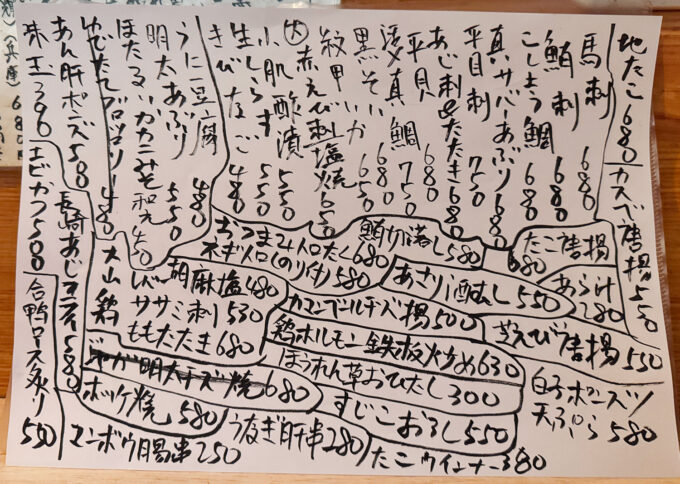 地たこ 680
カスベ唐揚 550
馬刺
鮪刺 680
こしょう鯛 680
真サバーあぶり 680
平目刺 750
あじ刺&たたき 680
平貝 680
活真鯛 750
黒そい 680
紋甲いか 650
赤えび刺塩焼 650
小肌酢漬 550
生しらす 550
きびなご 480
うに豆腐 480
明太あぶり 550
ほたるいかカニみそ和え 450
ゆでたてブロッコリー 480
あん肝ポン酢 580
珠玉 390
エビかつ 500
長崎あじフライ 580
合鴨ロース炙り 550
おつまみ人口たし 680
ネギトロ(のり付) 580
鮪切落し 580
たこ唐揚 680
あさり酒むし 550
あら汁 280
芝えび唐揚 550
大山鶏
胡麻塩 480
レバ
ササミ刺 530
ももたたき 680
カマンベールチーズ揚 500
鶏ホルモン鉄板炒め 630
ほうれん草おひたし 300
白子ポンズ
天ぷら 580
ホッケ焼 580
すじこおろし 550
マンボウ腸串 250
うなぎ肝串 280
たこウインナー 380